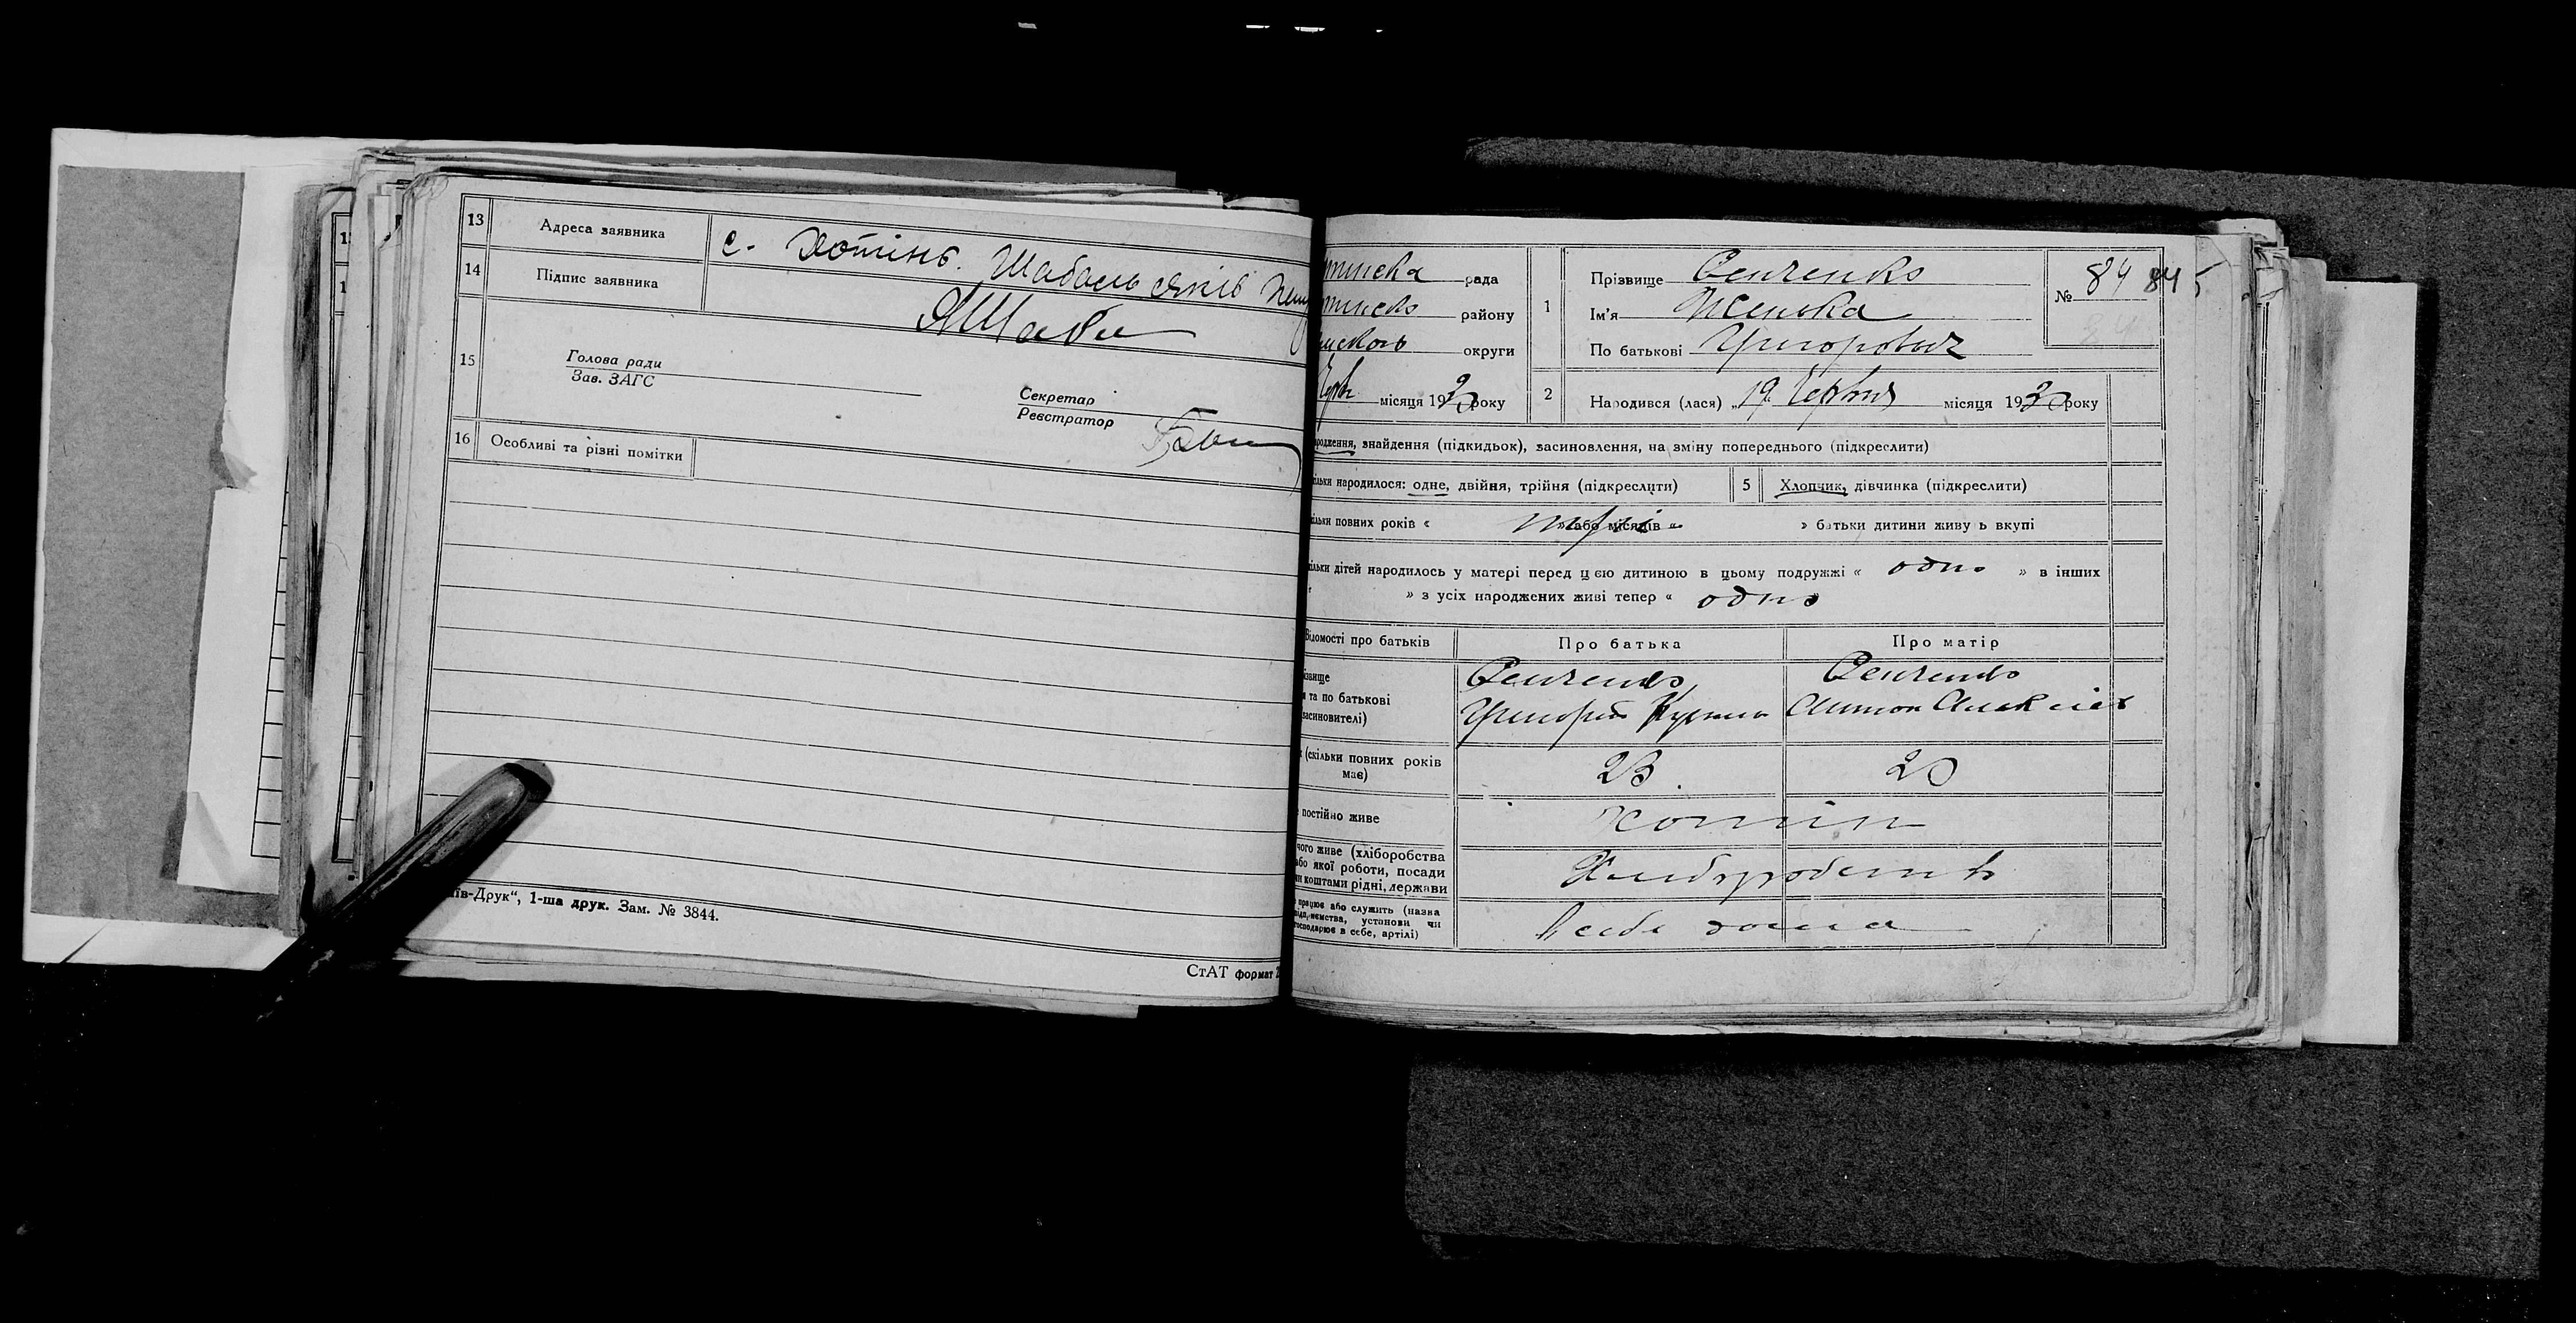 13 Адреса заявника с. Хотінь. Шабаль Яків
14 Підпис заявника ЯШаба
15 Голова ради
Зав. ЗАГС
Секретар
Реєстратор
16 Особливі та різні помітки
їв-Друк", 1-ша друк. Зам. № 3844.
СтАТ формат
тинска рада
тинсько району
ського округи
Черв місяця 1930 року
1 Прізвище Сенченко
Ім'я Женька
По батькові Григорович
№ 84 84 5
84
2 Народився (лася) „19 Червня місяця 1930 року
родження, знайдення (підкидьок), засиновлення, на зміну попереднього (підкреслити)
ільки народилося: одне, двійня, трійня (підкреслити) 5 Хлопчик, дівчинка (підкреслити)
ільки повних років « три » або місяців « » батьки дитини живуть вкупі
ільки дітей народилось у матері перед цією дитиною в цьому подружжі « одно » в інших
» з усіх народжених живі тепер « одно
Відомості про батьків Про батька Про матір
ізвище Сенченко Сенченко
я та по батькові Григорій Кузьми
засиновителі)
(скільки повних років має) 23 20
постійно живе Хотін
чого живе (хліборобства
або якої роботи, посади
чи коштами рідні, держави Хліборобств
працює або служить (назва
підприємства, установи чи
господарює в себе, артілі) В себе дома